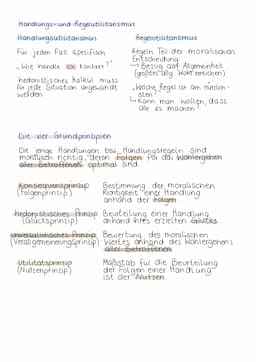 Handlungs- und Regelutilitarismus
Handlungsutilitarismus
Für jeden Fall spezifisch
→ Wie handle ich konkret?
hedonistisches Kalkül muss
für jede Situation angewandt
werden
Regelutilitarismus
Regeln Teil der moralischen
Entscheidung
→ Bezug auf Allgemeinheit
(größtes allg. Wohl erreichen)
→ Welche Regel ist am nützlich-
sten?
↳ Kann man wollen, dass
alle es machen?
Die vier Grundprinzipien
Die jenige Handlungen bzw. Handlungsregeln sind
moralisch richtig, deren Folgen für das Wohlergehen
aller Betroffenen optimal sind
Konsequenzprinzip
(Folgenprinzip)
Bestimmung der moralischen
Richtigkeit einer Handlung
anhand der Folgen
hedonistisches Prinzip
(Glücksprinzip)
Beurteilung einer Handlung
anhand ihres erzielten Glücks
universalistisches Prinzip
(Verallgemeinerungsprinzip)
Bewertung des moralischen
Wertes anhand des Wohlergehens
aller Betroffenen
Utilitätsprinzip
(Nutzenprinzip)
Maßstab für die Beurteilung
der Folgen einer Handlung
ist der Nutzen